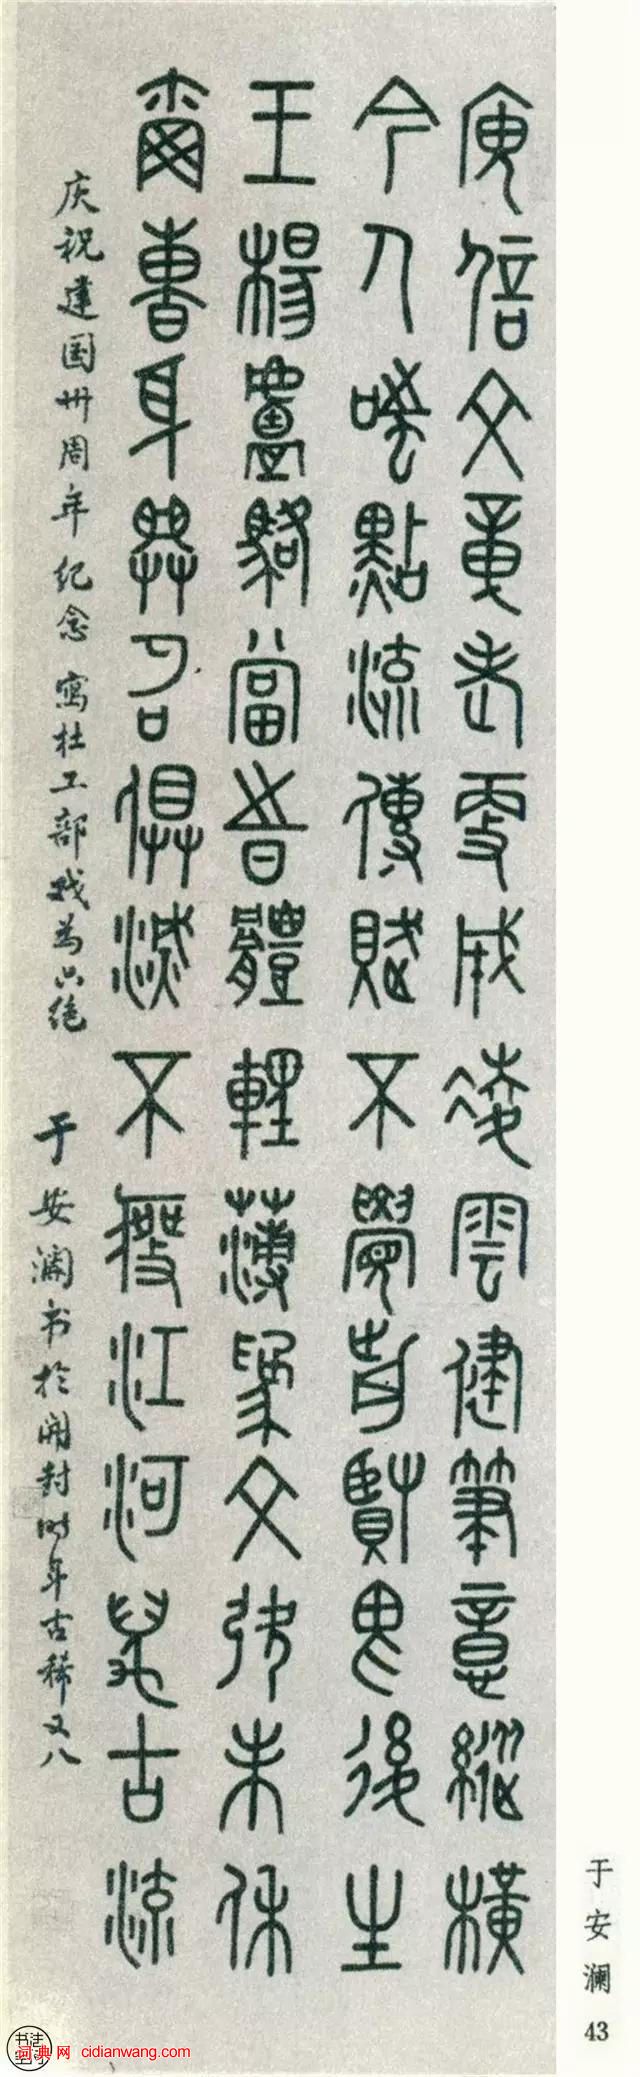 庾信文章老更成凌雲健筆意縱橫
今人嗤點流傳賦不覺前賢畏後生
王楊盧駱當時體輕薄為文弞未休
爾曹身與名俱滅不廢江河萬古流
庆祝建国卅周年纪念 寫杜工部戏为六绝 于安澜书於開封时年古稀又八
于安澜 43
词典网 cidianwang.com